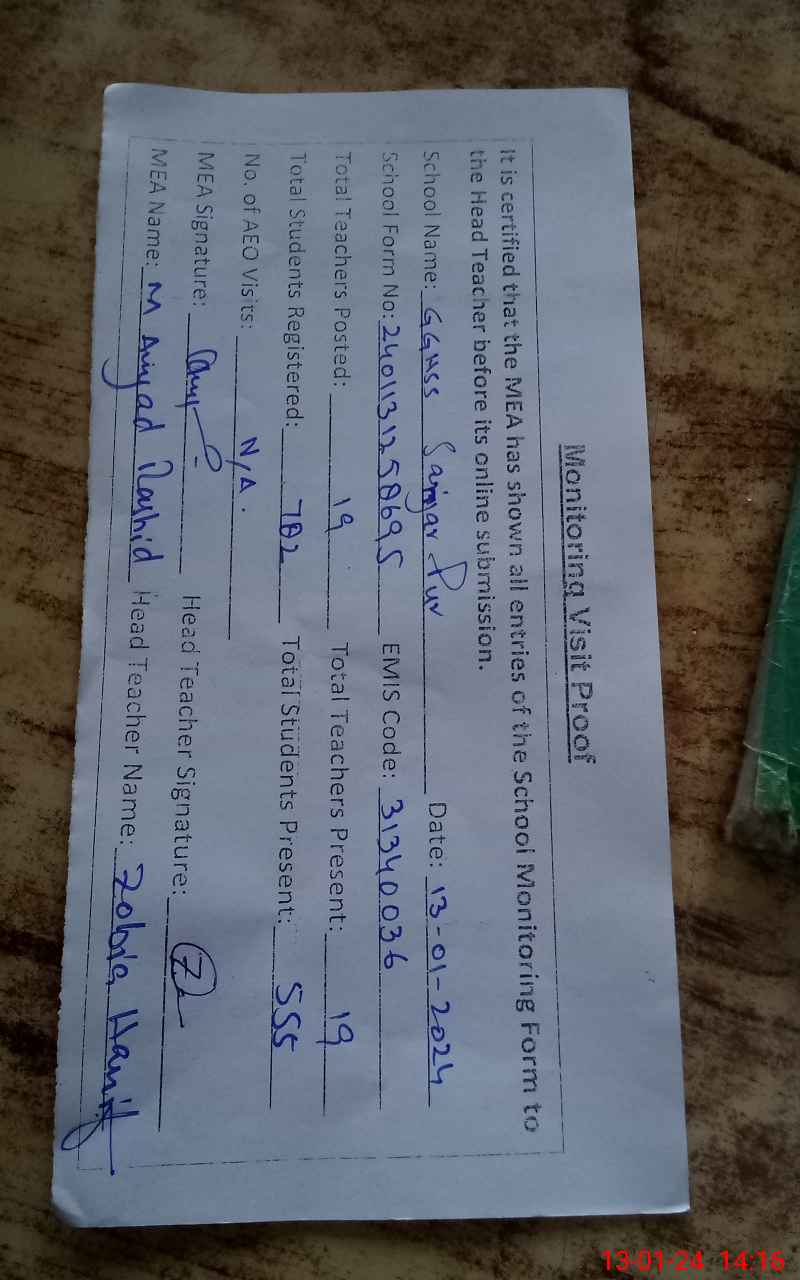 Monitoring Visit Proof
It is certified that the MEA has shown all entries of the School Monitoring Form to
the Head Teacher before its online submission.
School Name: GGHSS Sanjar Pur Date: 13-01-2024
School Form No: 2401131258695 EMIS Code: 31340036
Total Teachers Posted: 19 Total Teachers Present: 19
Total Students Registered: 782 Total Students Present: 555
No. of AEO Visits: N/A.
MEA Signature: Head Teacher Signature:
MEA Name: M Amjad Rashid Head Teacher Name: Zobia Hanif
13-01-24 14:16